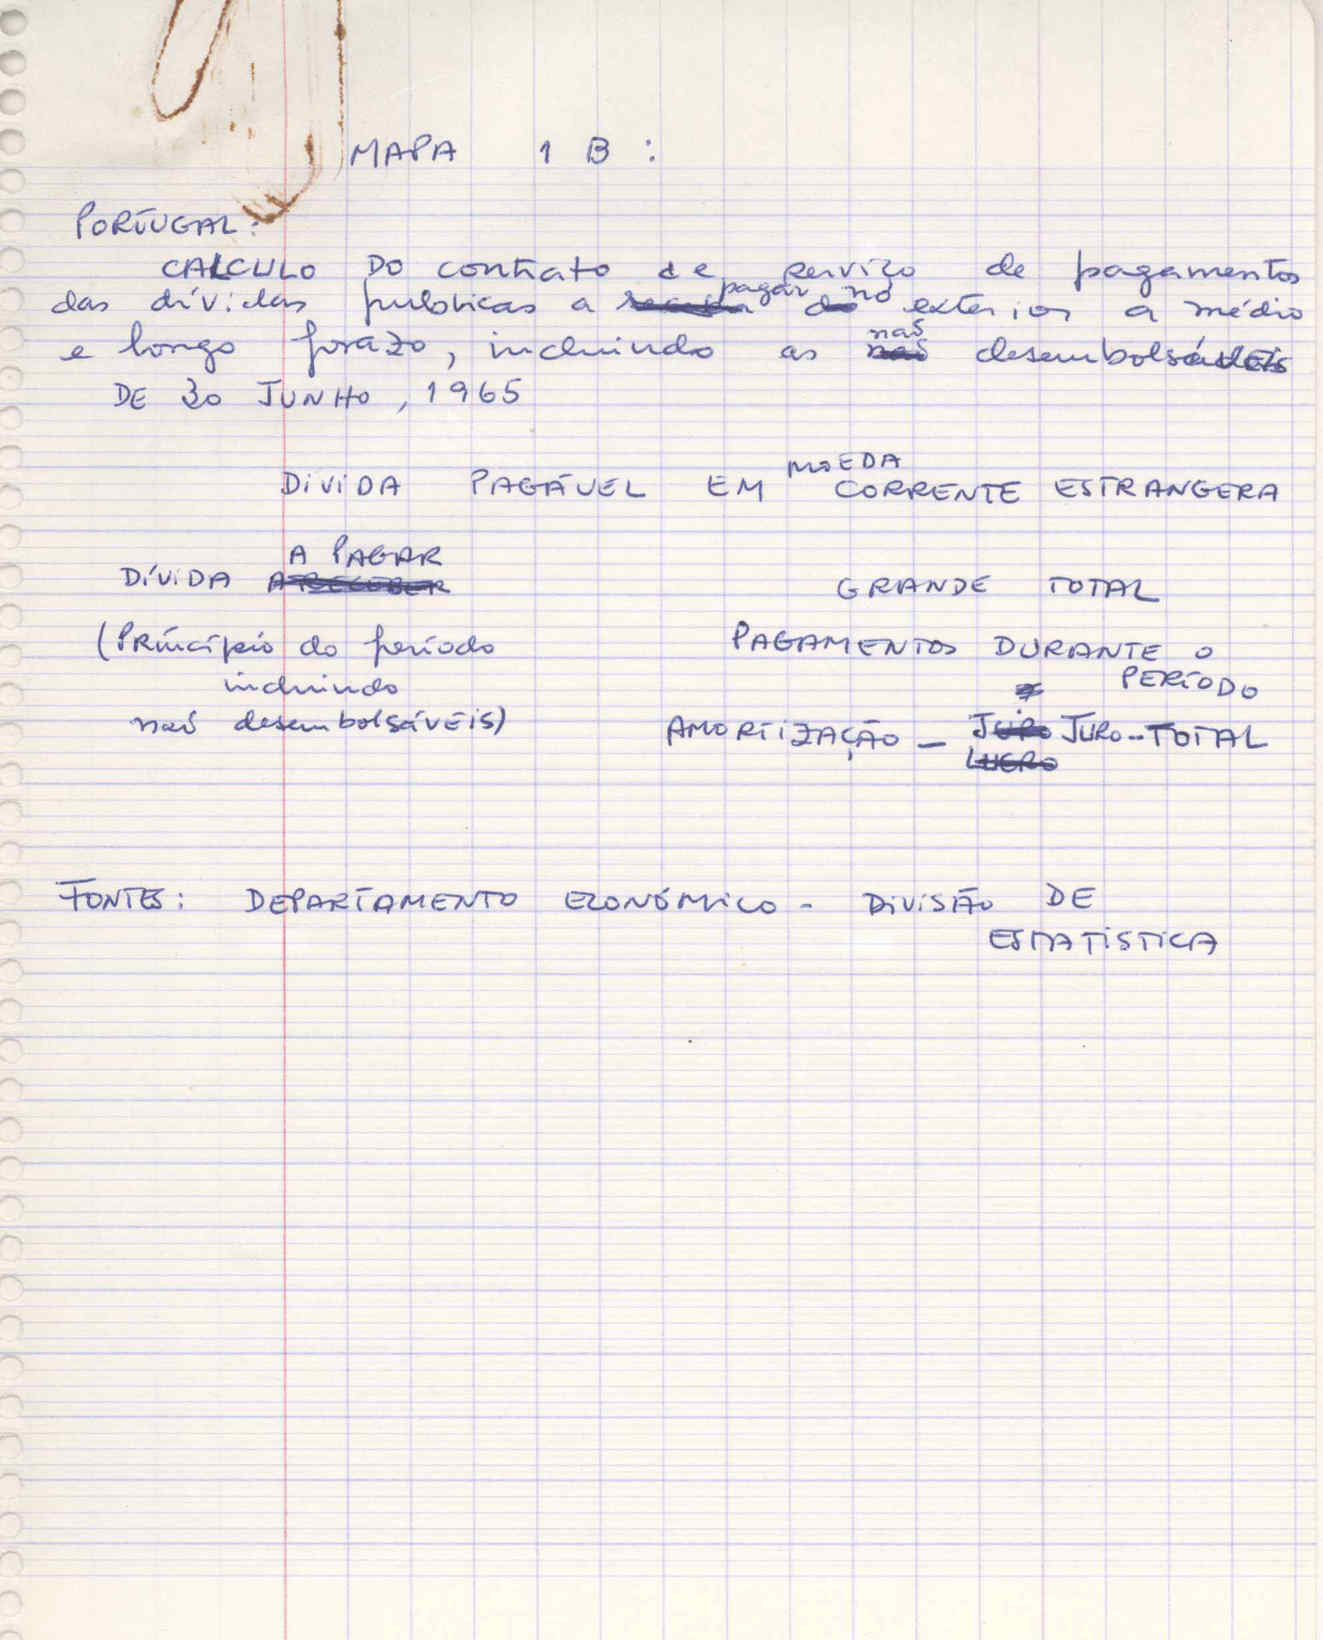 MAPA 1 B :
PORTUGAL:
CALCULO DO contrato de serviço de pagamentos
das dívidas publicas a pagar no exterior a médio
e longo prazo, incluindo as naõ desembolsáveis
DE 30 JUNHO, 1965
DIVIDA PAGÁVEL EM MOEDA CORRENTE ESTRANGERA
DÍVIDA A PAGAR
GRANDE TOTAL
(PRíncípio do período
incluindo
naõ desembolsávéis)
PAGAMENTOS DURANTE O
PERÍODO
AMORTIZAÇÃO - JURO JURO - TOTAL
LUCRO
FONTES: DEPARTAMENTO ECONÓMICO - DIVISÃO DE
ESTATÍSTICA